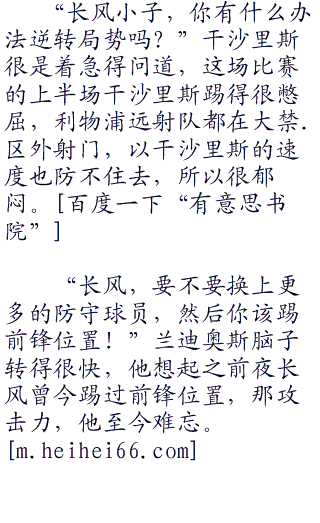 “长风小子，你有什么办
法逆转局势吗？”干沙里斯
很是着急得问道，这场比赛
的上半场干沙里斯踢得很憋
屈，利物浦远射队都在大禁.
区外射门，以干沙里斯的速
度也防不住去，所以很郁
闷。[百度一下“有意思书
院”]
“长风，要不要换上更
多的防守球员，然后你该踢
前锋位置！”兰迪奥斯脑子
转得很快，他想起之前夜长
风曾今踢过前锋位置，那攻
击力，他至今难忘。
[m.heihei66.com]